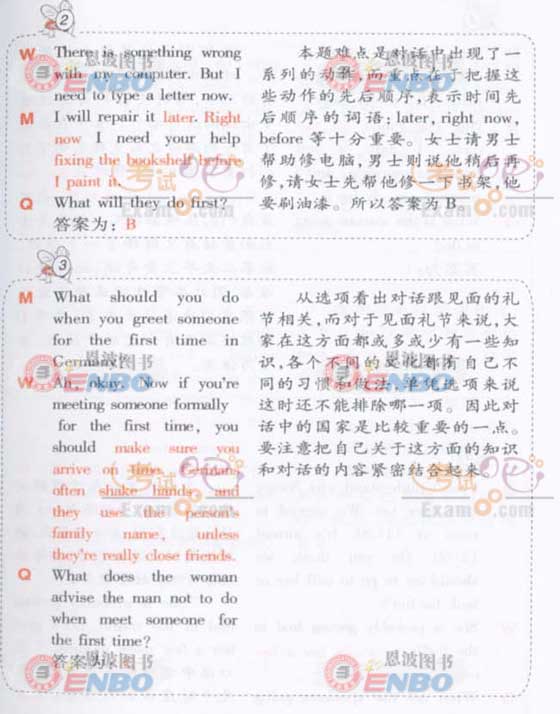 2
W There is something wrong
with my computer. But I
need to type a letter now.
M I will repair it later. Right
now I need your help
fixing the bookshelf before
I paint it.
Q What will they do first?
答案为：B
本题难点是对话中出现了一
系列的动作，而重点在于把握这
些动作的先后顺序，表示时间先
后顺序的词语：later, right now,
before 等十分重要。女士请男士
帮助修电脑，男士则说他稍后再
修，请女士先帮他修一下书架，他
要刷油漆。所以答案为 B。
3
M What should you do
when you greet someone
for the first time in
Germany?
W Ah, okay. Now if you're
meeting someone formally
for the first time, you
should make sure you
arrive on time. Germans
often shake hands and
they use the person's
family name, unless
they're really close friends.
Q What does the woman
advise the man not to do
when meet someone for
the first time?
答案为：
从选项看出对话跟见面的礼
节相关，而对于见面礼节来说，大
家在这方面都或多或少有一些知
识，各个不同的文化都有自己不
同的习惯和做法，单从选项来说
这时还不能排除哪一项。因此对
话中的国家是比较重要的一点。
要注意把自己关于这方面的知识
和对话的内容紧密结合起来。
恩波图书
ENBO
恩波图书
ENBO
考试吧
Exam8.com
考试吧
Exam8.com
恩波图书
ENBO
恩波图书
ENBO
考试吧
Exam8.com
考试吧
Exam8.com
恩波图书
ENBO
恩波图书
ENBO